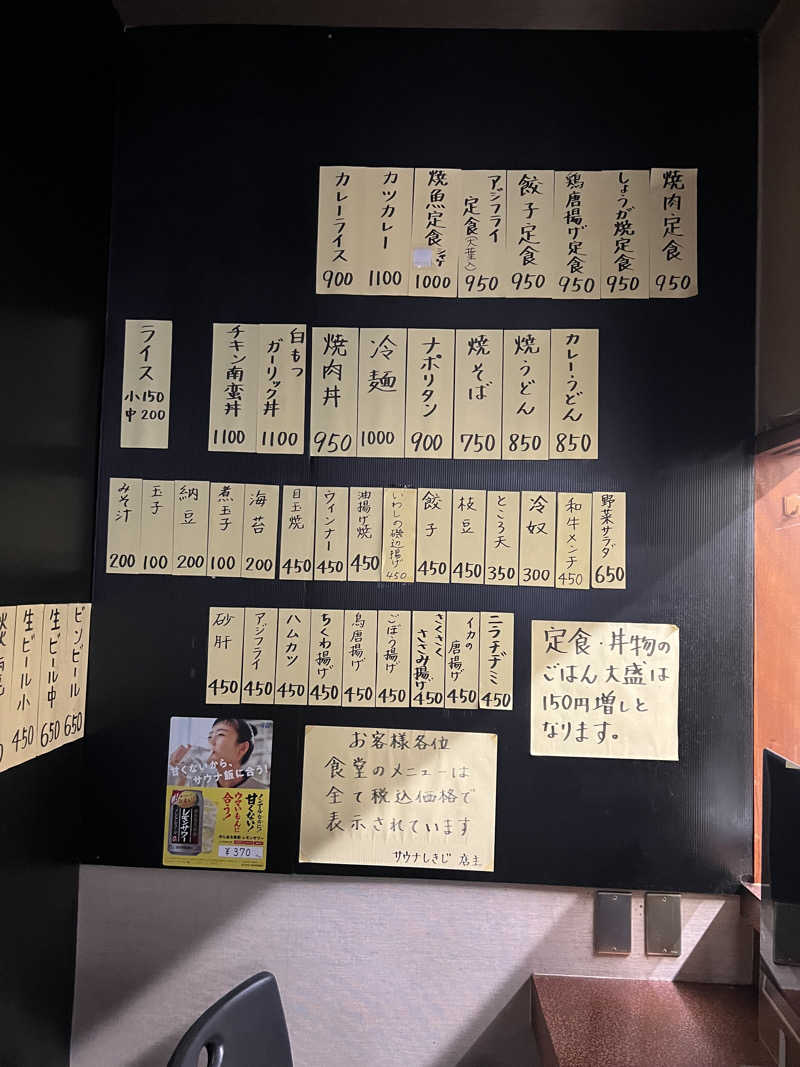 焼肉定食 950
しょうが焼定食 950
鶏唐揚げ定食 950
餃子定食 950
アジフライ定食(大葉入) 950
焼魚定食 シャケ 1000
カツカレー 1100
カレーライス 900
カレーうどん 850
焼うどん 850
焼そば 750
ナポリタン 900
冷麺 1000
焼肉丼 950
白もつガーリック丼 1100
チキン南蛮丼 1100
ライス 小150 中200
野菜サラダ 650
和牛メンチ 450
冷奴 300
ところ天 350
枝豆 450
餃子 450
いわしの磯辺揚げ 450
油揚げ焼 450
ウィンナー 450
目玉焼 450
海苔 200
煮玉子 100
納豆 200
玉子 100
みそ汁 200
ニラチヂミ 450
イカの唐揚げ 450
さくさくささみ揚げ 450
ごぼう揚げ 450
鳥唐揚げ 450
ちくわ揚げ 450
ハムカツ 450
アジフライ 450
砂肝 450
ビンビール 650
生ビール中 650
生ビール小 450
定食・丼物の
ごはん大盛は
150円増しと
なります。
お客様各位
食堂のメニューは
全て税込価格で
表示されています
サウナしきじ 店主
甘くないから、
サウナ飯に合う!
ノンアルなのに
甘くない!
ウマいもんに
合う!
レモンサワー
¥370